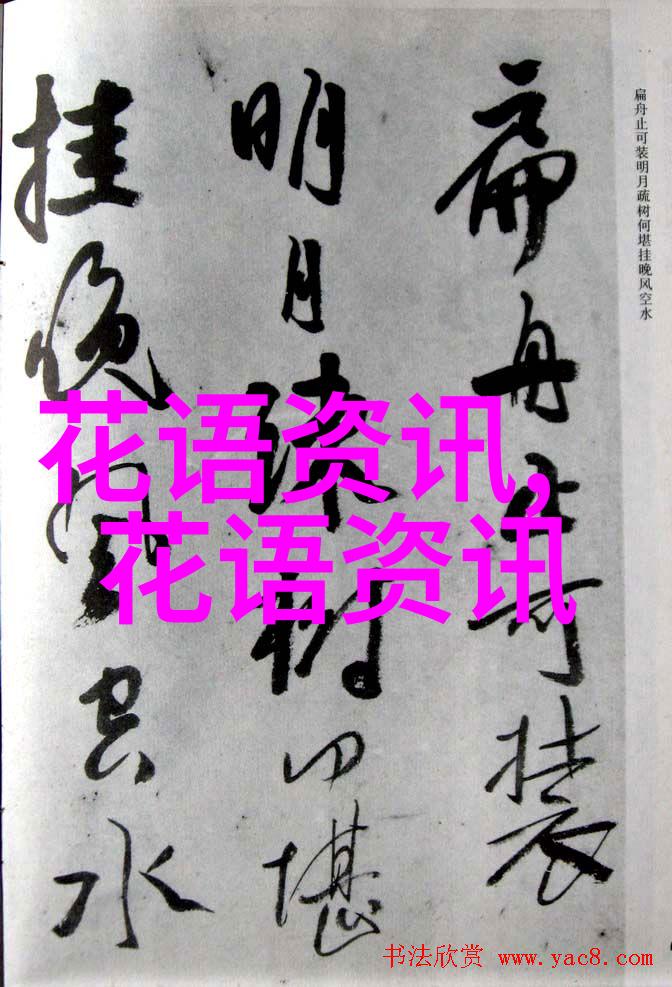 扁舟止可装
明月疏树何堪
挂晚风空水
扁舟止可装明月疏树何堪挂晚风空水
花语资讯,
花语资讯
书法欣赏 www.yac8.com